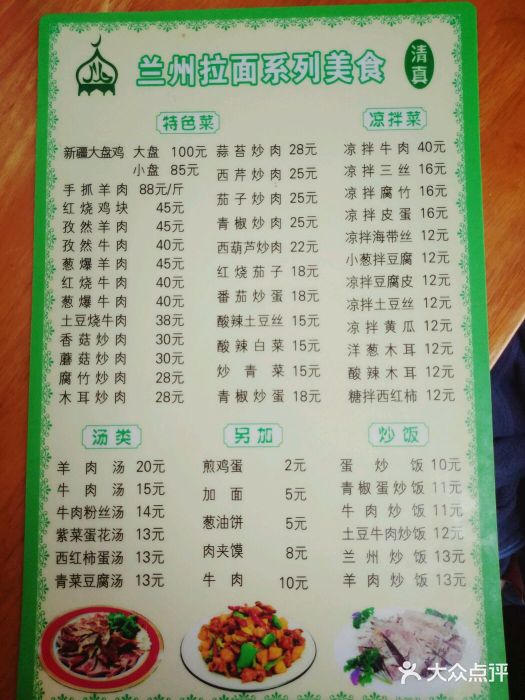 兰州拉面系列美食
清真
حلال
特色菜
新疆大盘鸡 大盘 100元
小盘 85元
手抓羊肉 88元/斤
红烧鸡块 45元
孜然羊肉 45元
孜然牛肉 40元
葱爆羊肉 45元
红烧牛肉 40元
葱爆牛肉 40元
土豆烧牛肉 38元
香菇炒肉 30元
蘑菇炒肉 30元
腐竹炒肉 28元
木耳炒肉 28元
蒜苔炒肉 28元
西芹炒肉 25元
茄子炒肉 25元
青椒炒肉 25元
西葫芦炒肉 22元
红烧茄子 18元
番茄炒蛋 18元
酸辣土豆丝 15元
酸辣白菜 15元
炒青菜 15元
青椒炒蛋 18元
凉拌菜
凉拌牛肉 40元
凉拌三丝 16元
凉拌腐竹 16元
凉拌皮蛋 16元
凉拌海带丝 12元
小葱拌豆腐 12元
凉拌豆腐皮 12元
凉拌土豆丝 12元
凉拌黄瓜 12元
洋葱木耳 12元
酸辣木耳 12元
糖拌西红柿 12元
汤类
羊肉汤 20元
牛肉汤 15元
牛肉粉丝汤 14元
紫菜蛋花汤 13元
西红柿蛋汤 13元
青菜豆腐汤 13元
另加
煎鸡蛋 2元
加面 5元
葱油饼 5元
肉夹馍 8元
牛肉 10元
炒饭
蛋炒饭 10元
青椒蛋炒饭 11元
牛肉炒饭 11元
土豆牛肉炒饭 12元
兰州炒饭 13元
羊肉炒饭 13元
大众点评